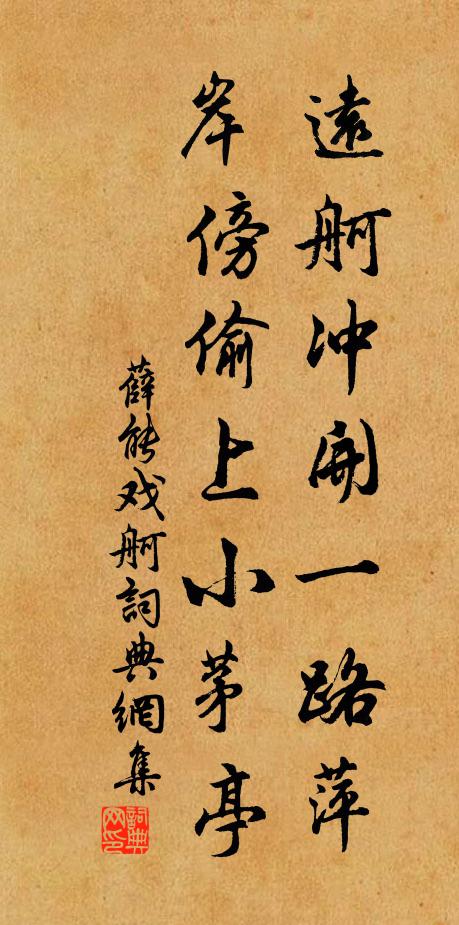 遠舸冲開一路萍
岸傍偷上小茅亭
薛能戏舸詞典網集
詞典网印